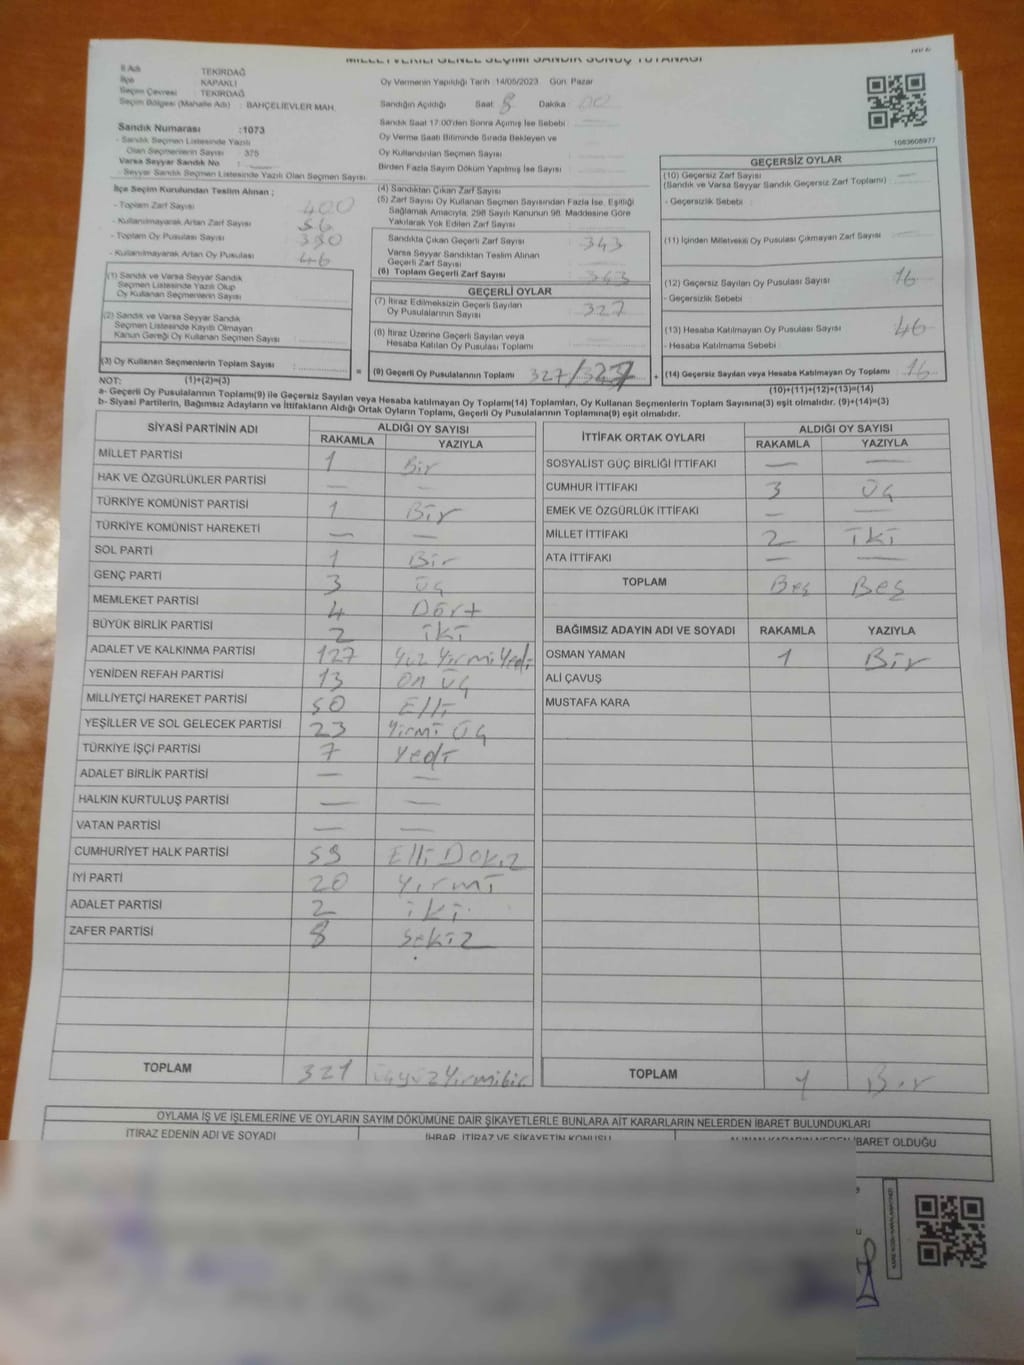 MİLLETVEKİLİ GENEL SEÇİMİ SANDIK SONUÇ TUTANAĞI
İl Adı TEKİRDAĞ
İlçe KAPAKLI
Seçim Çevresi : TEKİRDAĞ
Seçim Bölgesi (Mahalle Adı) : BAHÇELİEVLER MAH.
Sandık Numarası :1073
- Sandık Seçmen Listesinde Yazılı
Olan Seçmenlerin Sayısı 375
Varsa Seyyar Sandık No :
- Seyyar Sandık Seçmen Listesinde Yazılı Olan Seçmen Sayısı
İlçe Seçim Kurulundan Teslim Alınan ;
- Toplam Zarf Sayısı 400
- Kullanılmayarak Artan Zarf Sayısı 56
- Toplam Oy Pusulası Sayısı
- Kullanılmayarak Artan Oy Pusulası 46
(1) Sandık ve Varsa Seyyar Sandık
Seçmen Listesinde Yazılı Olup
Oy Kullanan Seçmenlerin Sayısı :
(2) Sandık ve Varsa Seyyar Sandık
Seçmen Listesinde Kayıtlı Olmayan
Kanun Gereği Oy Kullanan Seçmen Sayısı :
(3) Oy Kullanan Seçmenlerin Toplam Sayısı :
Oy Vermenin Yapıldığı Tarih :14/05/2023 Gün: Pazar
Sandığın Açıldığı Saat: 8 Dakika : 00
Sandık Saat 17.00'den Sonra Açılmış İse Sebebi :
Oy Verme Saati Bitiminde Sırada Bekleyen ve
Oy Kullandırılan Seçmen Sayısı :
Birden Fazla Sayım Döküm Yapılmış İse Sayısı :
(4) Sandıktan Çıkan Zarf Sayısı
(5) Zarf Sayısı Oy Kullanan Seçmen Sayısından Fazla İse, Eşitliği
Sağlamak Amacıyla, 298 Sayılı Kanunun 98. Maddesine Göre
Yakılarak Yok Edilen Zarf Sayısı :
Sandıkta Çıkan Geçerli Zarf Sayısı : 343
Varsa Seyyar Sandıktan Teslim Alınan
Geçerli Zarf Sayısı :
(6) Toplam Geçerli Zarf Sayısı : 343
GEÇERLİ OYLAR
(7) İtiraz Edilmeksizin Geçerli Sayılan
Oy Pusulalarının Sayısı : 327
(8) İtiraz Üzerine Geçerli Sayılan veya
Hesaba Katılan Oy Pusulası Toplamı :
= (9) Geçerli Oy Pusulalarının Toplamı 327/327 +
1083608977
GEÇERSİZ OYLAR
(10) Geçersiz Zarf Sayısı
(Sandık ve Varsa Seyyar Sandık Geçersiz Zarf Toplamı) : —
- Geçersizlik Sebebi :
(11) İçinden Milletvekili Oy Pusulası Çıkmayan Zarf Sayısı :
(12) Geçersiz Sayılan Oy Pusulası Sayısı : 16
- Geçersizlik Sebebi
(13) Hesaba Katılmayan Oy Pusulası Sayısı : 46
- Hesaba Katılmama Sebebi :
(14) Geçersiz Sayılan veya Hesaba Katılmayan Oy Toplamı : 16
(10)+(11)+(12)+(13)=(14)
NOT: (1)+(2)=(3)
a- Geçerli Oy Pusulalarının Toplamı(9) ile Geçersiz Sayılan veya Hesaba katılmayan Oy Toplamı(14) Toplamları, Oy Kullanan Seçmenlerin Toplam Sayısına(3) eşit olmalıdır. (9)+(14)=(3)
b- Siyasi Partilerin, Bağımsız Adayların ve İttifakların Aldığı Ortak Oyların Toplamı, Geçerli Oy Pusulalarının Toplamına(9) eşit olmalıdır.
SİYASİ PARTİNİN ADI ALDIĞI OY SAYISI
RAKAMLA YAZIYLA
MİLLET PARTİSİ 1 Bir
HAK VE ÖZGÜRLÜKLER PARTİSİ — —
TÜRKİYE KOMÜNİST PARTİSİ 1 Bir
TÜRKİYE KOMÜNİST HAREKETİ — —
SOL PARTİ 1 Bir
GENÇ PARTİ 3 üç
MEMLEKET PARTİSİ 4 Dört
BÜYÜK BİRLİK PARTİSİ 2 iki
ADALET VE KALKINMA PARTİSİ 127 Yüz Yirmi Yedi
YENİDEN REFAH PARTİSİ 13 on üç
MİLLİYETÇİ HAREKET PARTİSİ 50 Elli
YEŞİLLER VE SOL GELECEK PARTİSİ 23 Yirmi üç
TÜRKİYE İŞÇİ PARTİSİ 7 Yedi
ADALET BİRLİK PARTİSİ — —
HALKIN KURTULUŞ PARTİSİ — —
VATAN PARTİSİ — —
CUMHURİYET HALK PARTİSİ 59 Elli Dokuz
İYİ PARTİ 20 Yirmi
ADALET PARTİSİ 2 iki
ZAFER PARTİSİ 8 Sekiz
TOPLAM 321 üçyüz Yirmibir
İTTİFAK ORTAK OYLARI ALDIĞI OY SAYISI
RAKAMLA YAZIYLA
SOSYALİST GÜÇ BİRLİĞİ İTTİFAKI — —
CUMHUR İTTİFAKI 3 üç
EMEK VE ÖZGÜRLÜK İTTİFAKI — —
MİLLET İTTİFAKI 2 iki
ATA İTTİFAKI — —
TOPLAM Beş Beş
BAĞIMSIZ ADAYIN ADI VE SOYADI RAKAMLA YAZIYLA
OSMAN YAMAN 1 Bir
ALİ ÇAVUŞ
MUSTAFA KARA
TOPLAM 1 Bir
OYLAMA İŞ VE İŞLEMLERİNE VE OYLARIN SAYIM DÖKÜMÜNE DAİR ŞİKAYETLERLE BUNLARA AİT KARARLARIN NELERDEN İBARET BULUNDUKLARI
İTİRAZ EDENİN ADI VE SOYADI İHBAR, İTİRAZ VE ŞİKAYETİN KONUSU ALINAN KARARIN NEDEN İBARET OLDUĞU